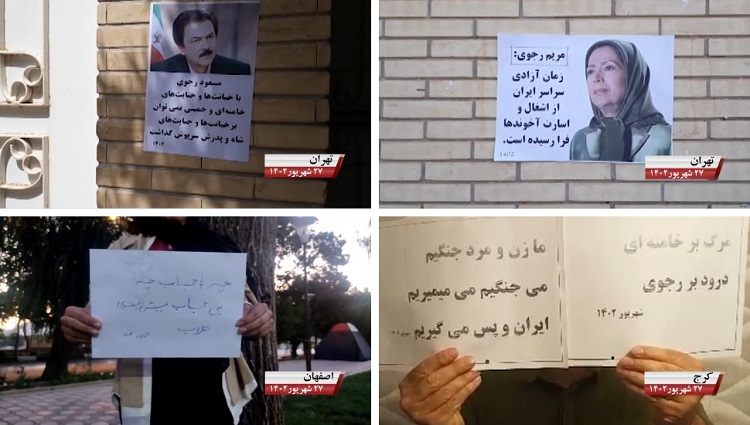 مسعود رجوی
با خیانت‌ها و جنایت‌های
خامنه‌ای و خمینی نمی توان
بر خیانت‌ها و جنایت‌های
شاه و پدرش سرپوش گذاشت
۱۴۰۲
تهران
۲۷ شهریور ۱۴۰۲
مریم رجوی:
زمان آزادی
سراسر ایران
از اشغال و
اسارت آخوندها
فرا رسیده است.
تهران
۲۷ شهریور ۱۴۰۲
انقلاب
اصفهان
۲۷ شهریور ۱۴۰۲
مرگ بر خامنه ای
درود بر رجوی
شهریور ۱۴۰۲
ما زن و مرد جنگیم
می جنگیم می میمیریم
ایران و پس می گیریم
کرج
۲۷ شهریور ۱۴۰۲